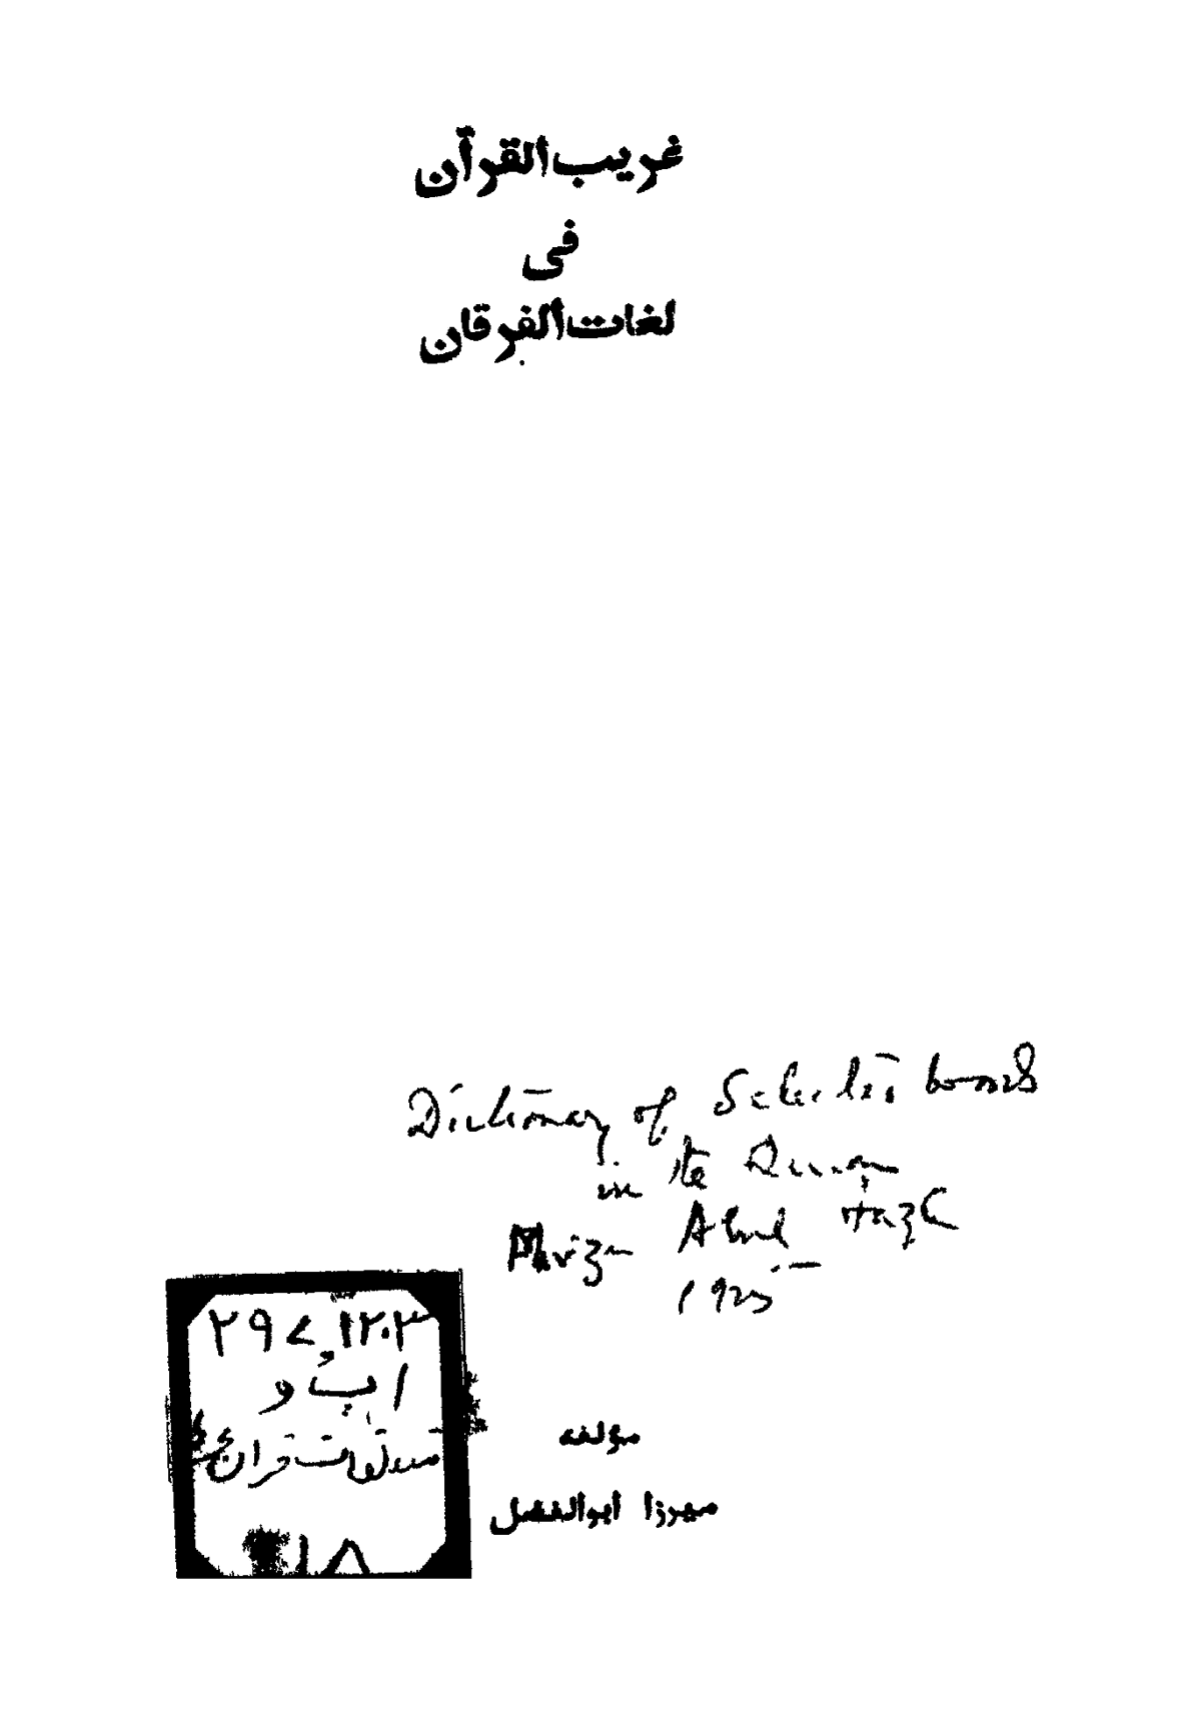 غريب القرآن
فى
لغات الفرقان
Dictionary of Selected words
in the Quran
Mirza Abul Fazl
1925
٢٩٧٫١٢٠٣
ا ب و
لغات قرآن
١٨
مؤلفه
ميرزا ابوالفضل